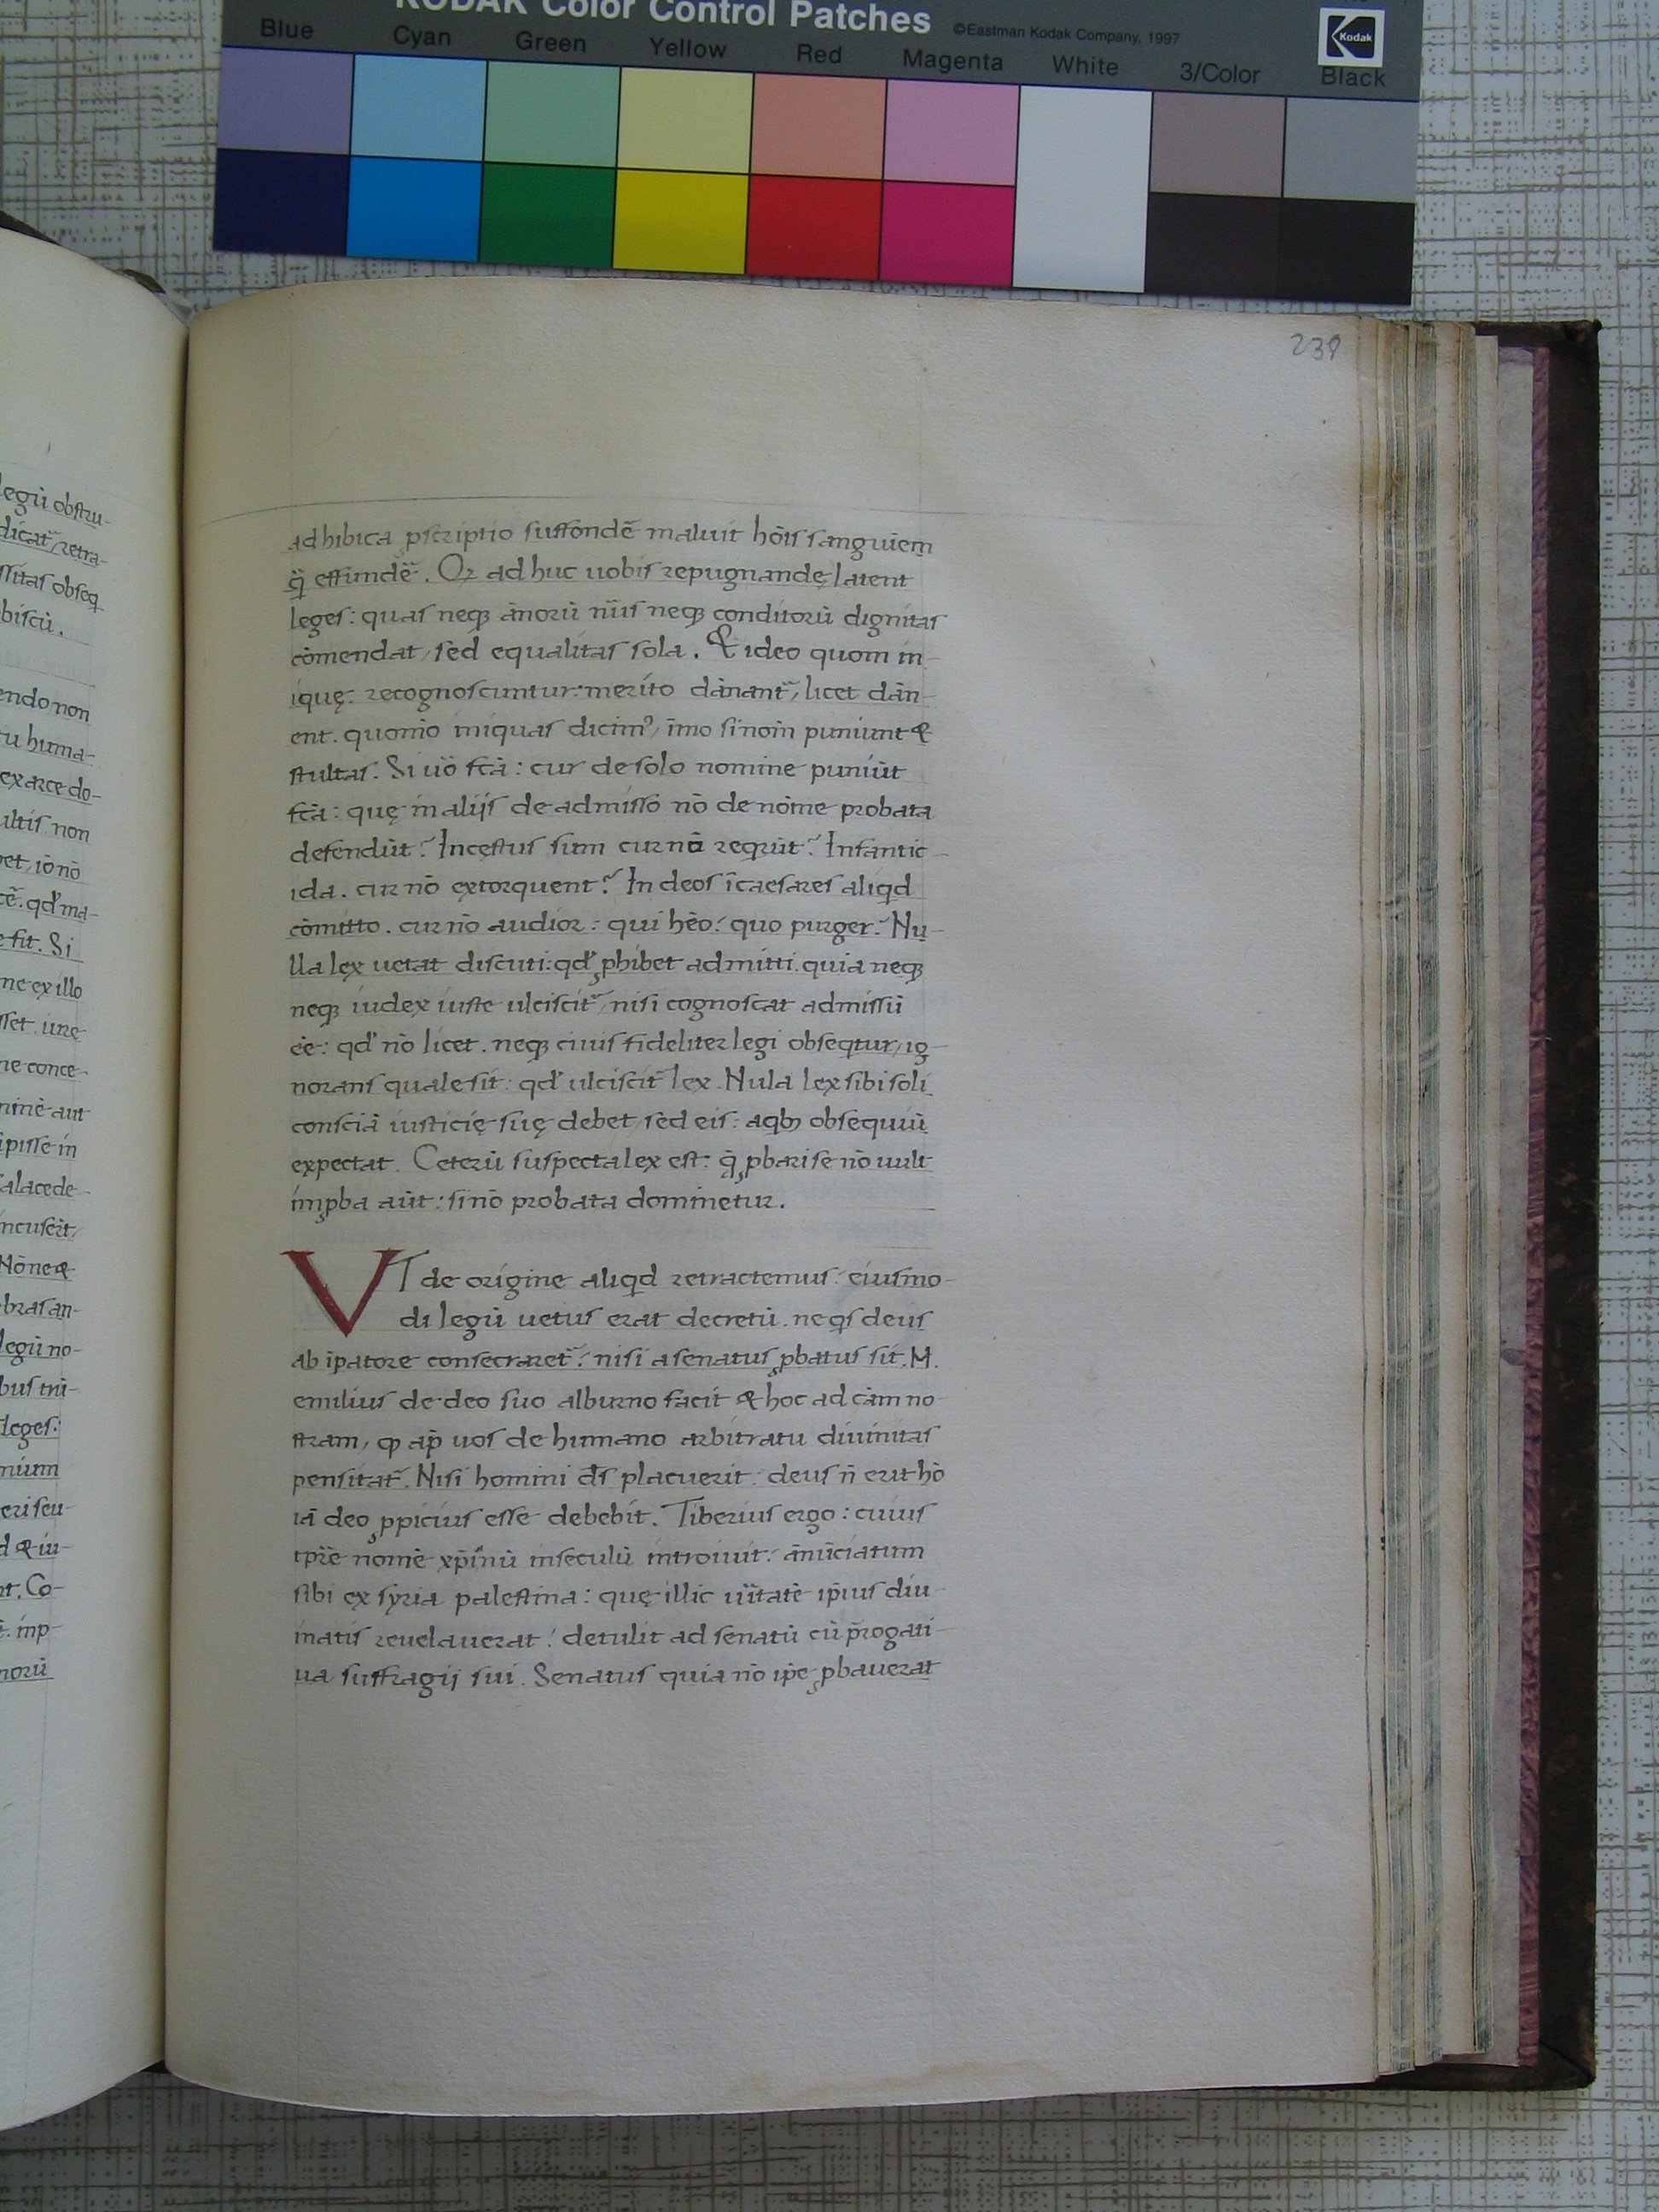 KODAK Color Control Patches
©Eastman Kodak Company, 1997
Kodak
Blue Cyan Green Yellow Red Magenta White 3/Color Black
legū obstru-
dicat̃, retra-
ssitas obseq
biscū.
endo non
tu huma-
ex arce do-
ultis non
et, iō nō
cē. qď ma-
fit. Si
ne ex illo
sset. ure
ne conce-
nine aut
ipisse in
alacede-
ncuserit,
Nōne &
bras an-
legū no-
bus tru-
leges:
nium
eri seu-
d & iu-
nt. Co-
. inp-
norū
238
adhibica pscriptio suffondē maluit hōis sanguiem
q̈ effundē̃. Oꝛ ad huc uobis repugnandę latent
leges: quas neqꝫ ānorū nūs neqꝫ conditorū dignitas
cōmendat, sed equalitas sola. & ideo quom in-
ique: recognoscuntur: merito dānant̃, licet dān-
ent. quomō iniquas dicimꝰ, īmo si noīn puniunt &
stultas. Si uō fcā: cur de solo nomine puniūt
fcā: quę in alijs de admisso nō de nōme probata
defendūt? Incęstus sum cur nō reqrūt? Infantic-
ida. cur nō extorquent? In deos ī caesares aliqd
cōmitto. cur nō audior: qui hēo? quo purger? Nu-
lla lex uetat discuti: qď ꝓhibet admitti. quia neqꝫ
neqꝫ iudex iuste ulciscit̃, nisi cognoscat admissū
ēe: qď nō licet. neqꝫ ciuis fideliter legi obseqtur, ig-
norans quale sit: qď ulciscit̃ lex. Nula lex sibi soli
consciā iusticię suę debet, sed eis: a qbꝫ obsequiū
expectat. Ceterū suspecta lex est: q̄ ꝓbari se nō uult
imꝓba aūt: si nō probata dominetur.
VT de origine aliqd retractemus: eiusmo-
di legū uetus erat decretū. ne qs deus
ab ipatore consecraret̃: nisi a senatus ꝓbatus sit. M.
emilius de deo suo alburno facit & hoc ad cām no-
stram, ꝙ ap̄ uos de humano arbitratu diuinitas
pensitat̃. Nisi homini dꝭs placuerit: deus n̄ erit hō
iā deo ꝓpicius esse debebit. Tiberius ergo: cuius
tpr̄e nomē xp̄inū in seculū introiuit: ānūciatum
sibi ex syria palestina: quę illic uītatē ip̄ius diu-
initatis reuelauerat: detulit ad senatū cū p̄rogati-
ua suffragij sui. Senatus quia nō ip̄e ꝓbauerat